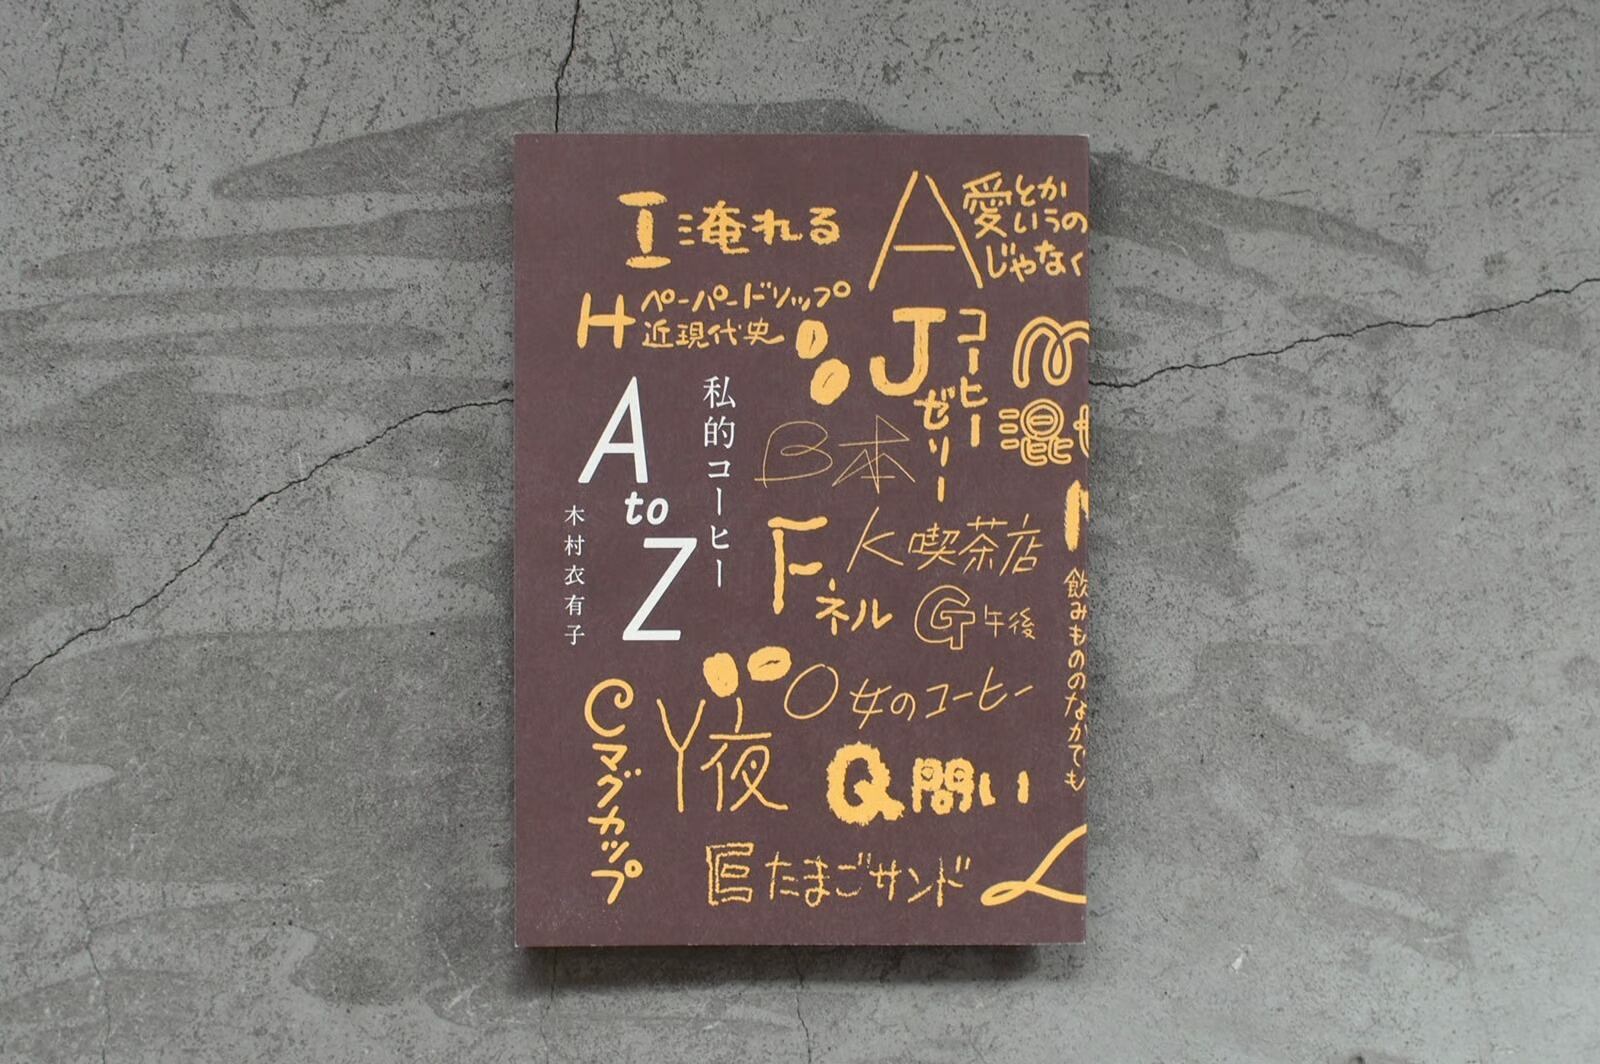 I 淹れる
A 愛とか
いうの
じゃなく
H ペーパードリップ
近現代史
J コーヒー
ゼリー
M 混
私的コーヒー
A to Z
木村衣有子
B 本
K 喫茶店
F ネル
G 午後
N 飲みもののなかでも
O 女のコーヒー
C マグカップ
Y 夜
Q 問い
E たまごサンド
L